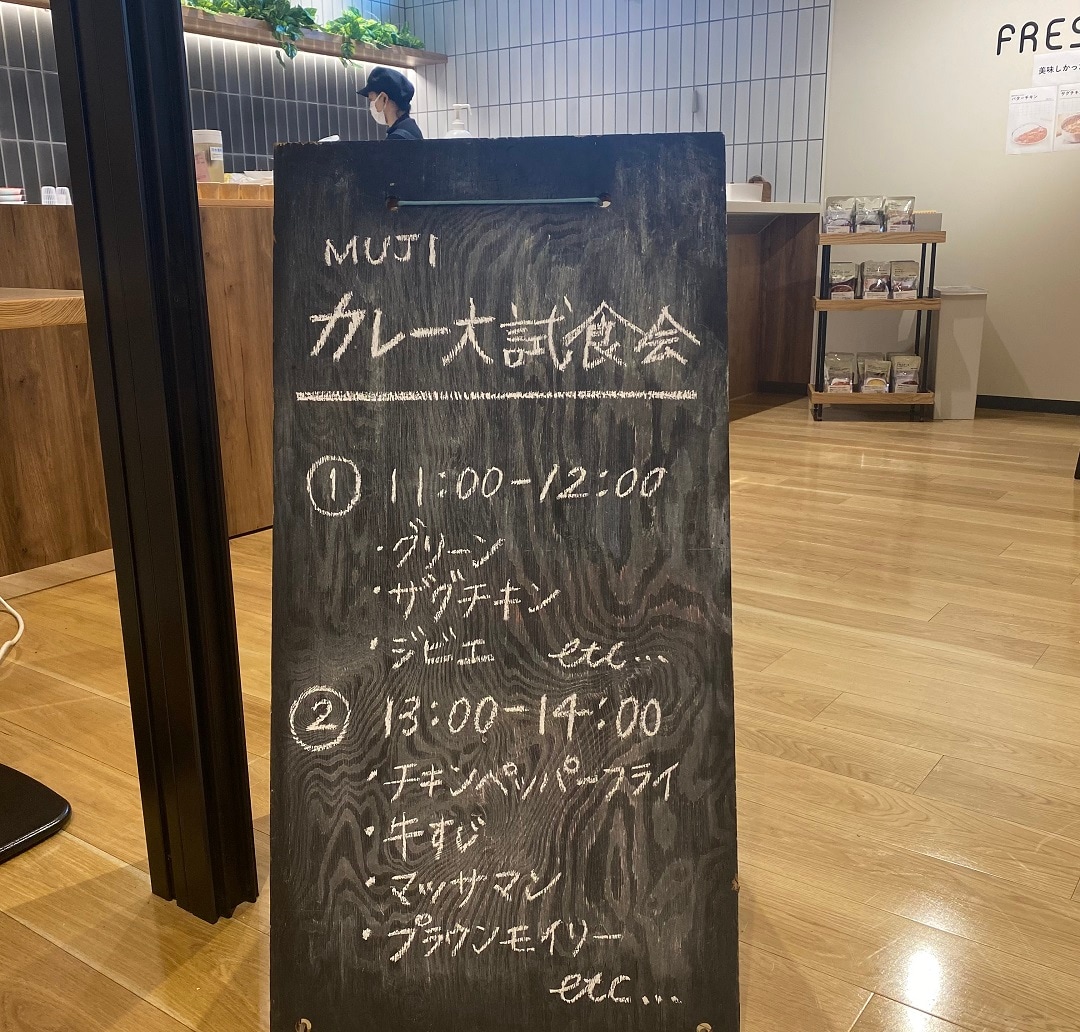 FRES
美味しかっ
バターチキン
MUJI
カレー大試食会
① 11:00-12:00
・グリーン
・ザグチキン
・ジビエ etc...
② 13:00-14:00
・チキンペッパーフライ
・牛すじ
・マッサマン
・プラウンモイリー
etc...